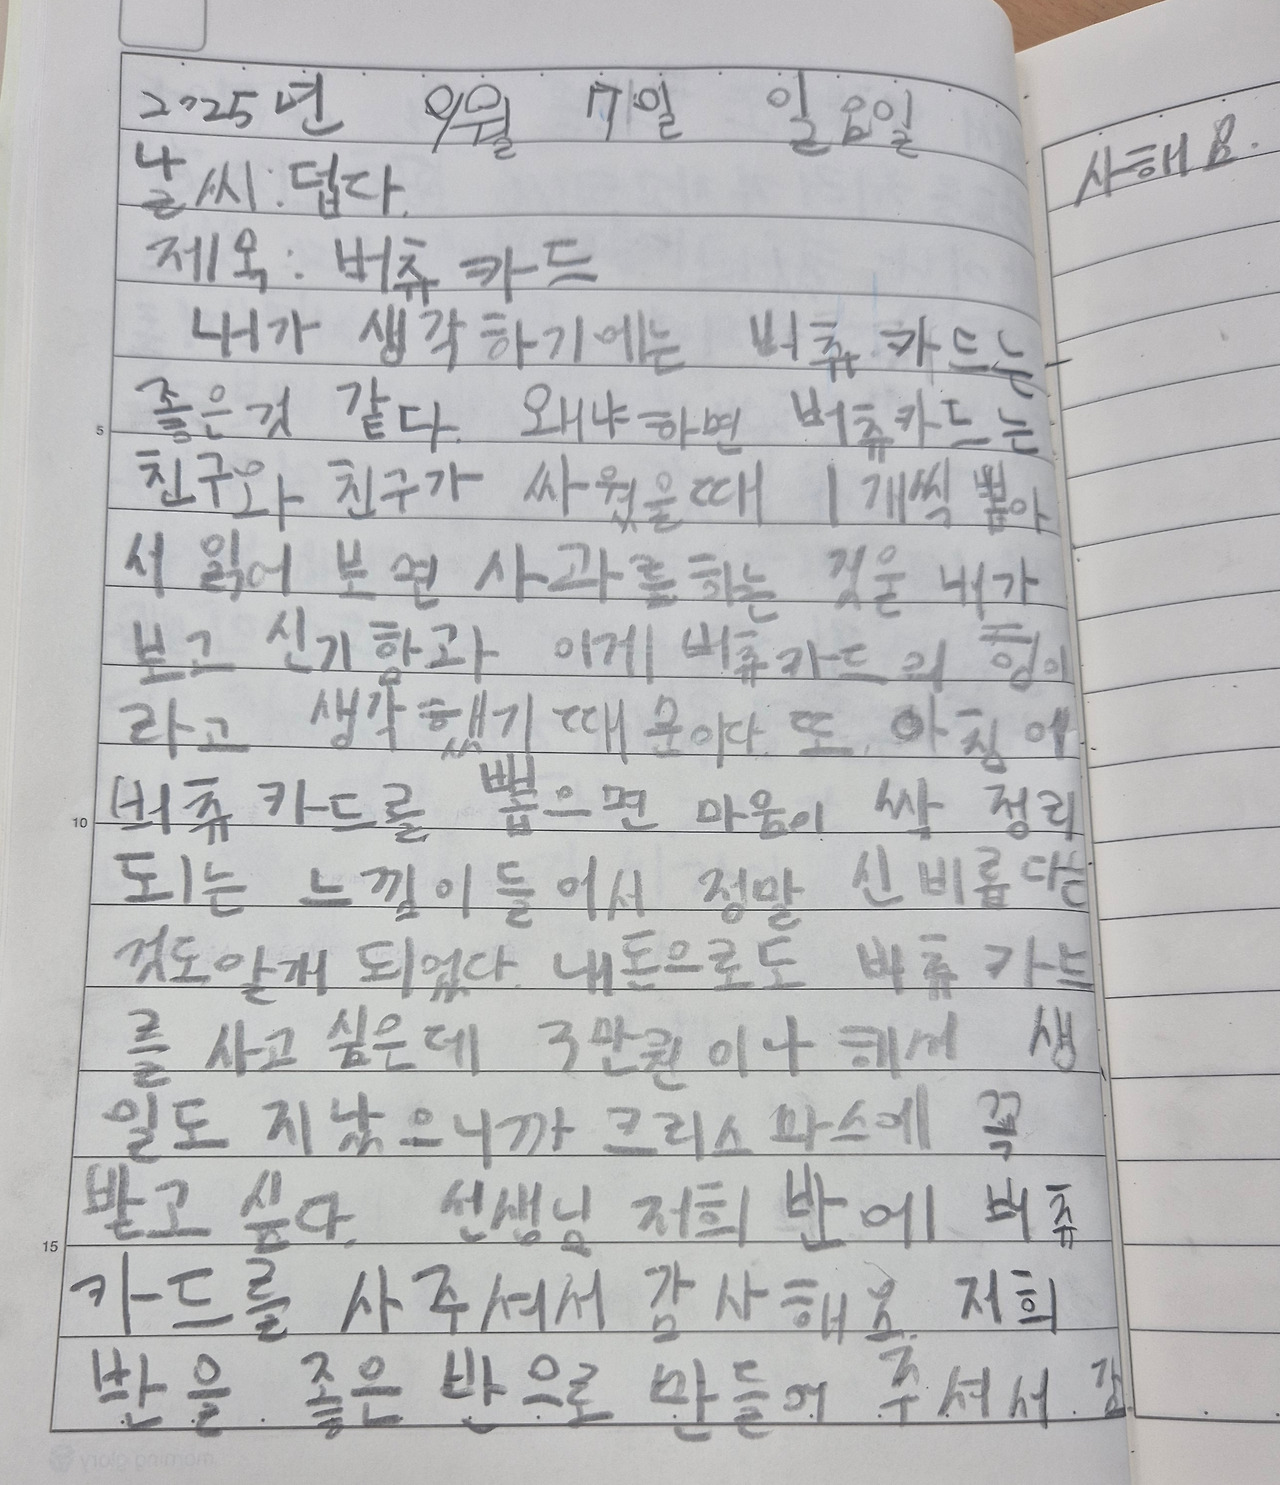 2025년 9월 7일 일요일
날씨: 덥다.
제목: 버츄카드
내가 생각하기에는 버츄카드는
좋은것 같다. 왜냐하면 버츄카드는
친구와 친구가 싸웠을때 1개씩 뽑아
서 읽어 보면 사과를하는 것을 내가
보고 신기함과 이게 버츄카드의 힘이
라고 생각했기 때문이다. 또, 아침에
버츄 카드를 뽑으면 마음이 싹 정리
되는 느낌이들어서 정말 신비롭다는
것도알게 되었다. 내돈으로도 버츄카드
를 사고 싶은데 3만원이나 해서 생
일도 지났으니까 크리스마스에 꼭
받고 싶다. 선생님 저희 반에 버츄
카드를 사주셔서 감사해요. 저희
반을 좋은 반으로 만들어 주셔서 감
사해요.
5
10
15
morning glory